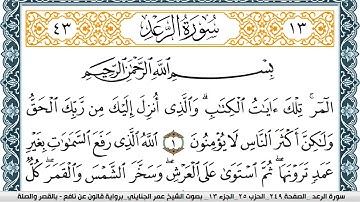 ١٣
سُورَةُ الرَّعْدِ
٤٣
بِسْمِ اللَّهِ الرَّحْمَٰنِ الرَّحِيمِ
الٓمٓر ۚ تِلْكَ ءَايَاتُ الْكِتَابِ ۗ وَالَّذِي أُنزِلَ إِلَيْكَ مِن رَّبِّكَ الْحَقُّ
وَلَكِنَّ أَكْثَرَ النَّاسِ لَا يُؤْمِنُونَ ١ اللَّهُ الَّذِي رَفَعَ السَّمَاوَاتِ بِغَيْرِ
عَمَدٍ تَرَوْنَهَا ۖ ثُمَّ اسْتَوَى عَلَى الْعَرْشِ ۖ وَسَخَّرَ الشَّمْسَ وَالْقَمَرَ ۖ كُلٌّ
سورة الرعد _ الصفحة ٢٤٩ _ الحزب ٢٥ _ الجزء ١٣ _ بصوت الشيخ عمر الجنايني _ برواية قالون عن نافع - بالقصر والصلة